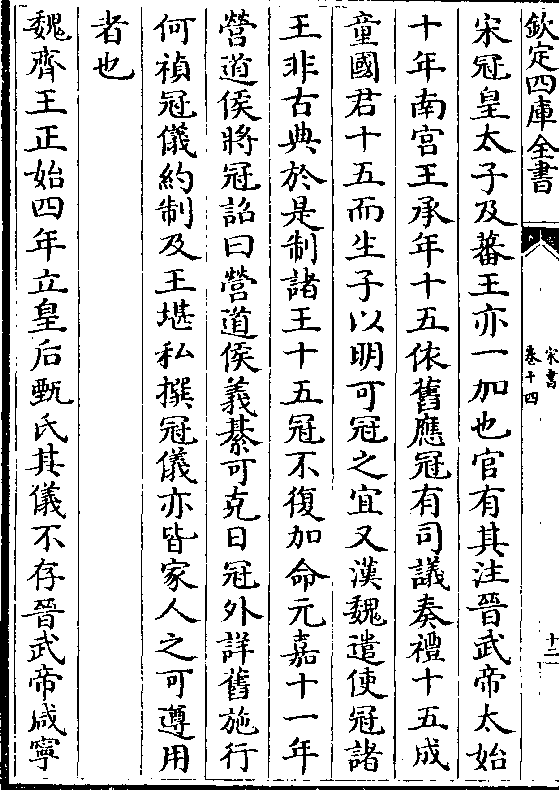 欽定四庫全書
宋書
卷十四
十二
宋冠皇太子及蕃王亦一加也官有其注晉武帝太始
十年南宮王承年十五依舊應冠有司議奏禮十五成
童國君十五而生子以明可冠之宜又漢魏遣使冠諸
王非古典於是制諸王十五冠不復加命元嘉十一年
營道侯將冠詔曰營道侯義綦可克日冠外詳舊施行
何禎冠儀約制及王堪私撰冠儀亦皆家人之可遵用
者也
魏齊王正始四年立皇后甄氏其儀不存晉武帝咸寧